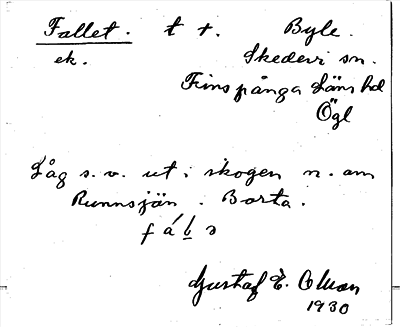 Fallet. t +. Byle.
ek. Skedevi sn.
Finspånga Läns hd
Ögl
Låg s. v. ut i skogen n. om
Runnsjön. Borta.
Gustaf E. Olson
1930